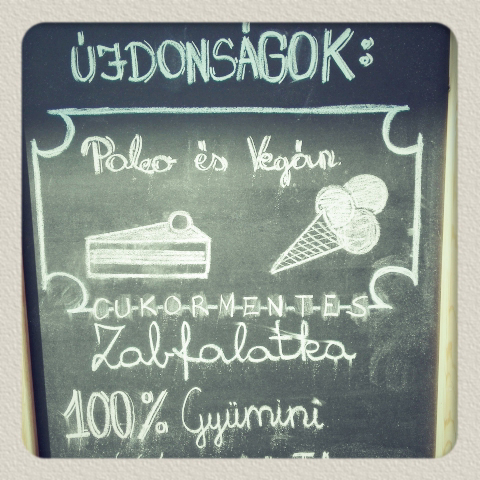 ÚJDONSÁGOK:
Paleo és Vegán
CUKORMENTES
Zabfalatka
100% Gyümini